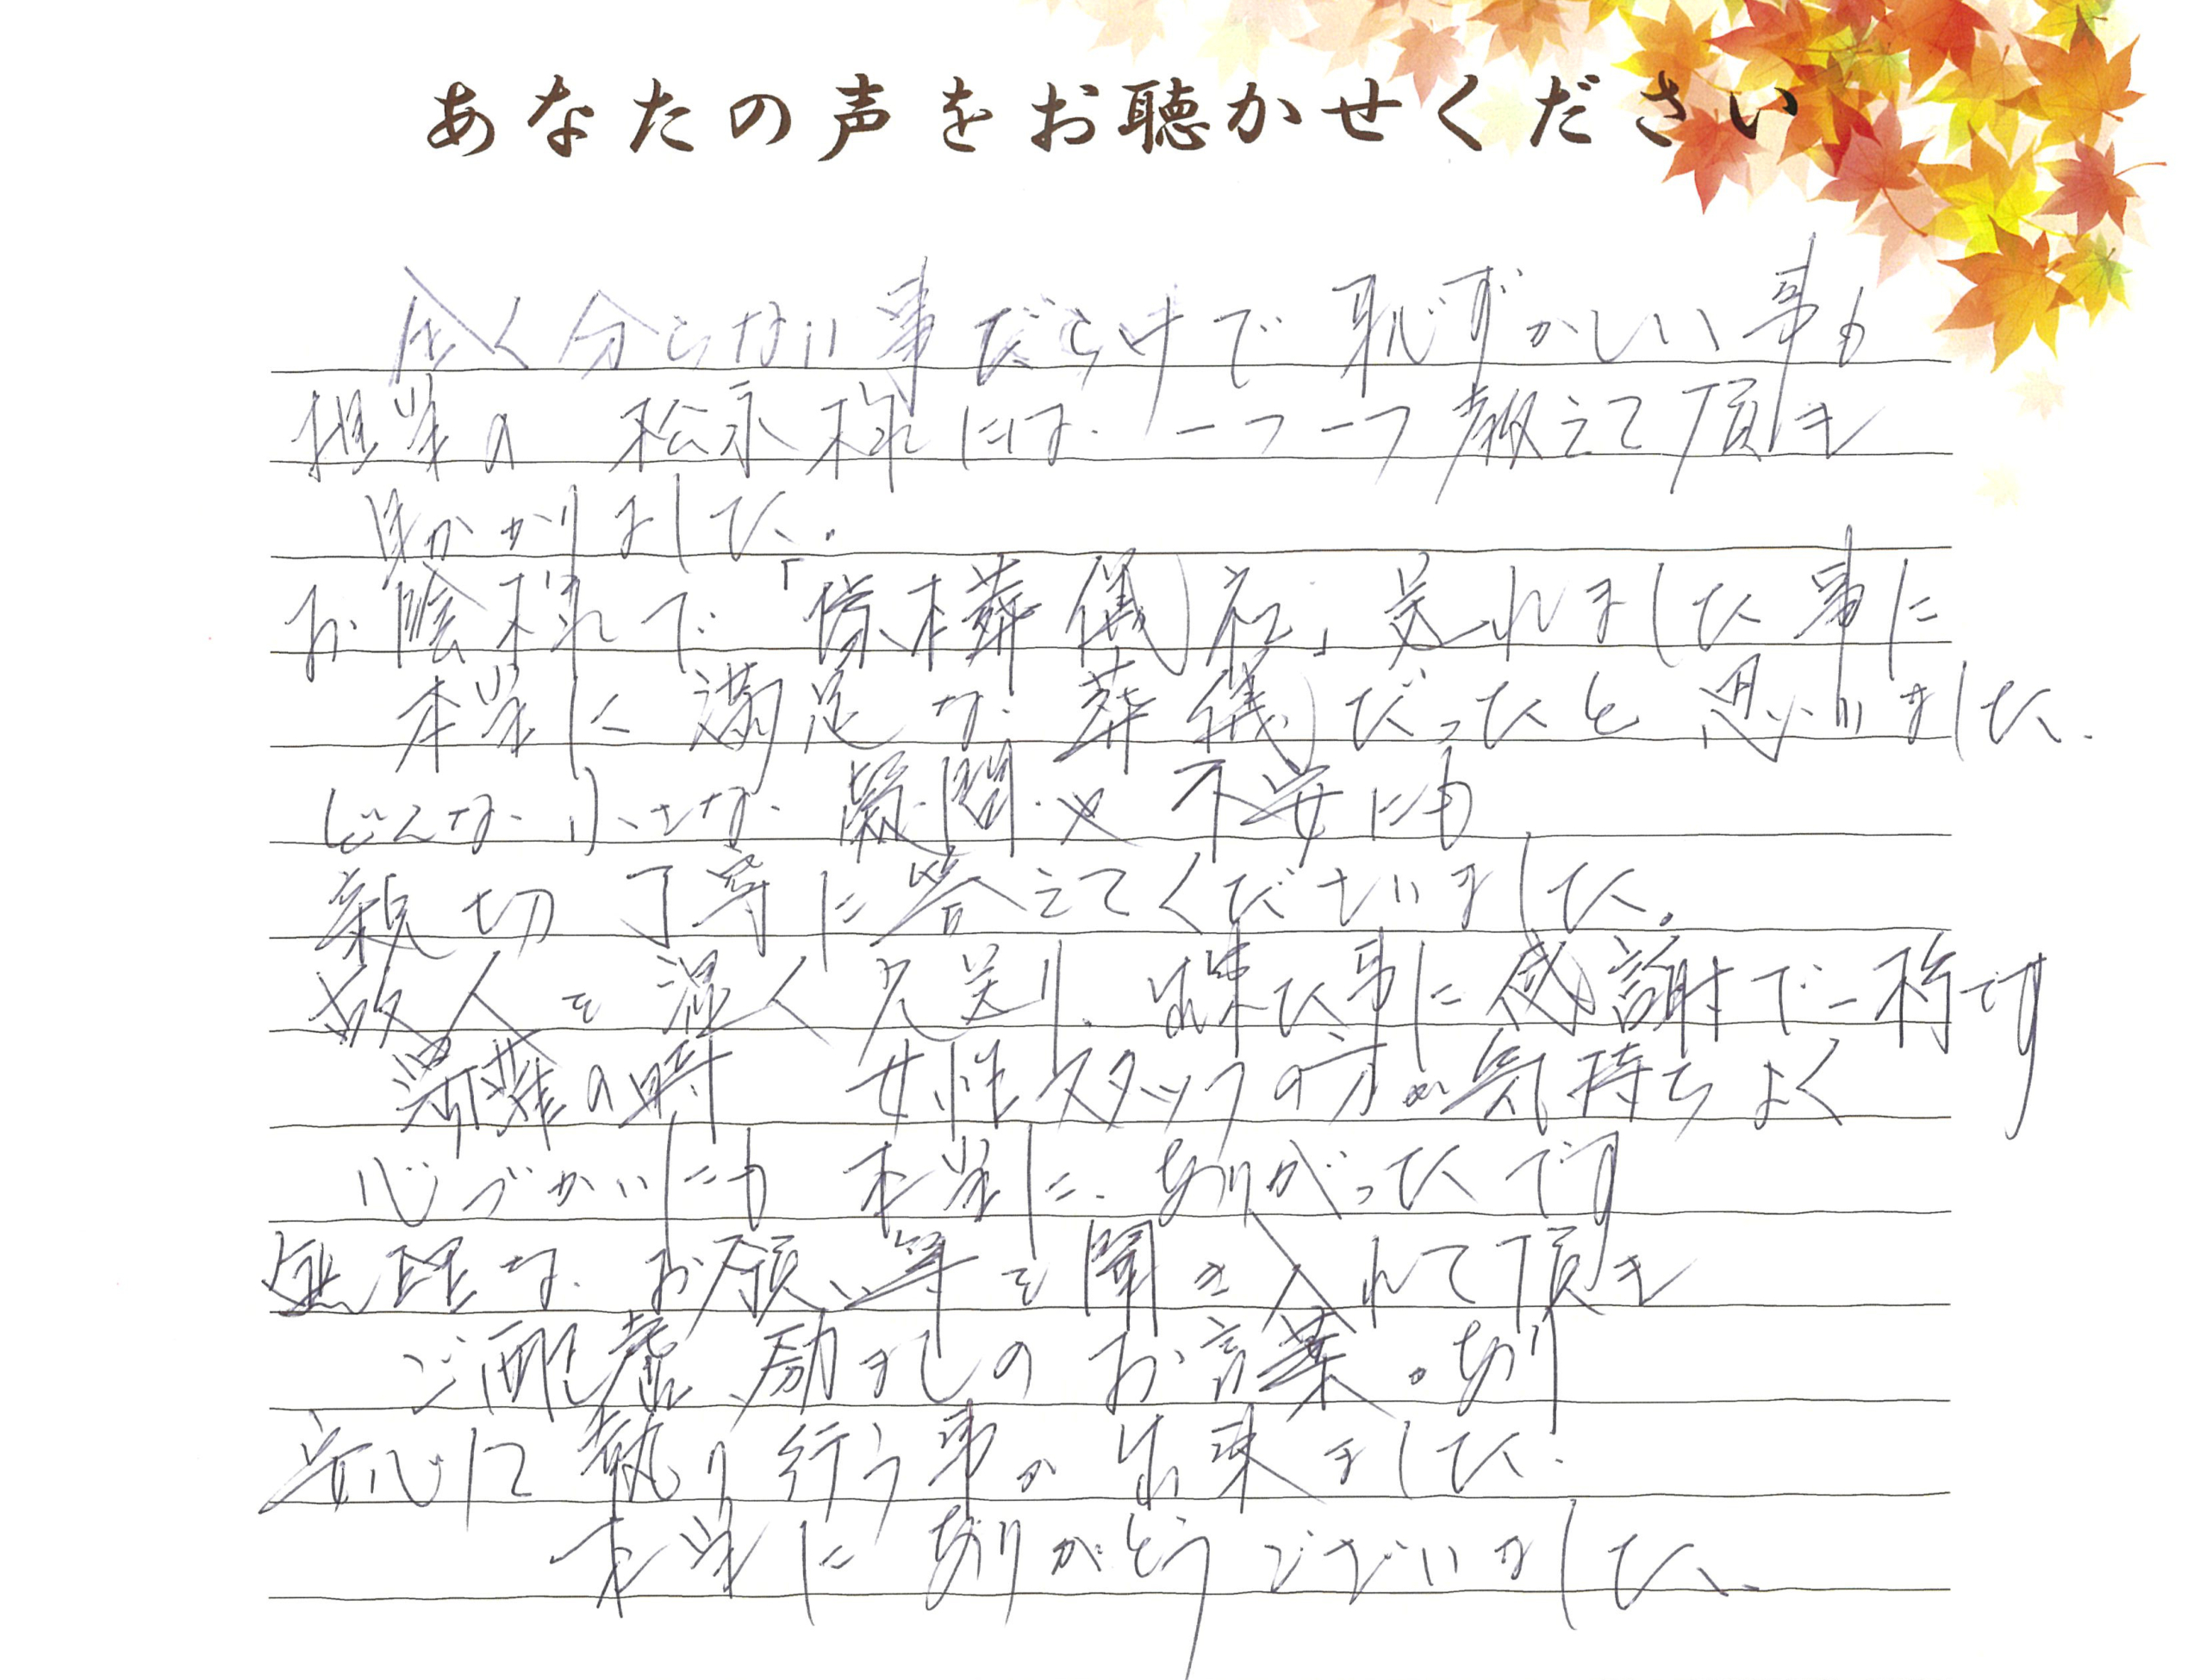 あなたの声をお聴かせください
全く分らない事だらけで恥ずかしい事も
担当の 松永様には、一つ一つ教えて頂き
助かりました。
お陰様で「 葬儀社」 れました事に
本当に満足な葬儀だったと思いました、
どんな小さな疑問や不安にも
親切丁寧に答えてくださいました。
故人を 見送り、出来た事に感謝で一杯です
の時 女性スタッフの方の気持ちよく
心づかいにも 本当に、ありがったです
無理な、お願い等を聞き入れて頂き
ご配慮、励ましのお言葉 あり
安心して執り行う事が出来ました、
本当にありがとうございました、